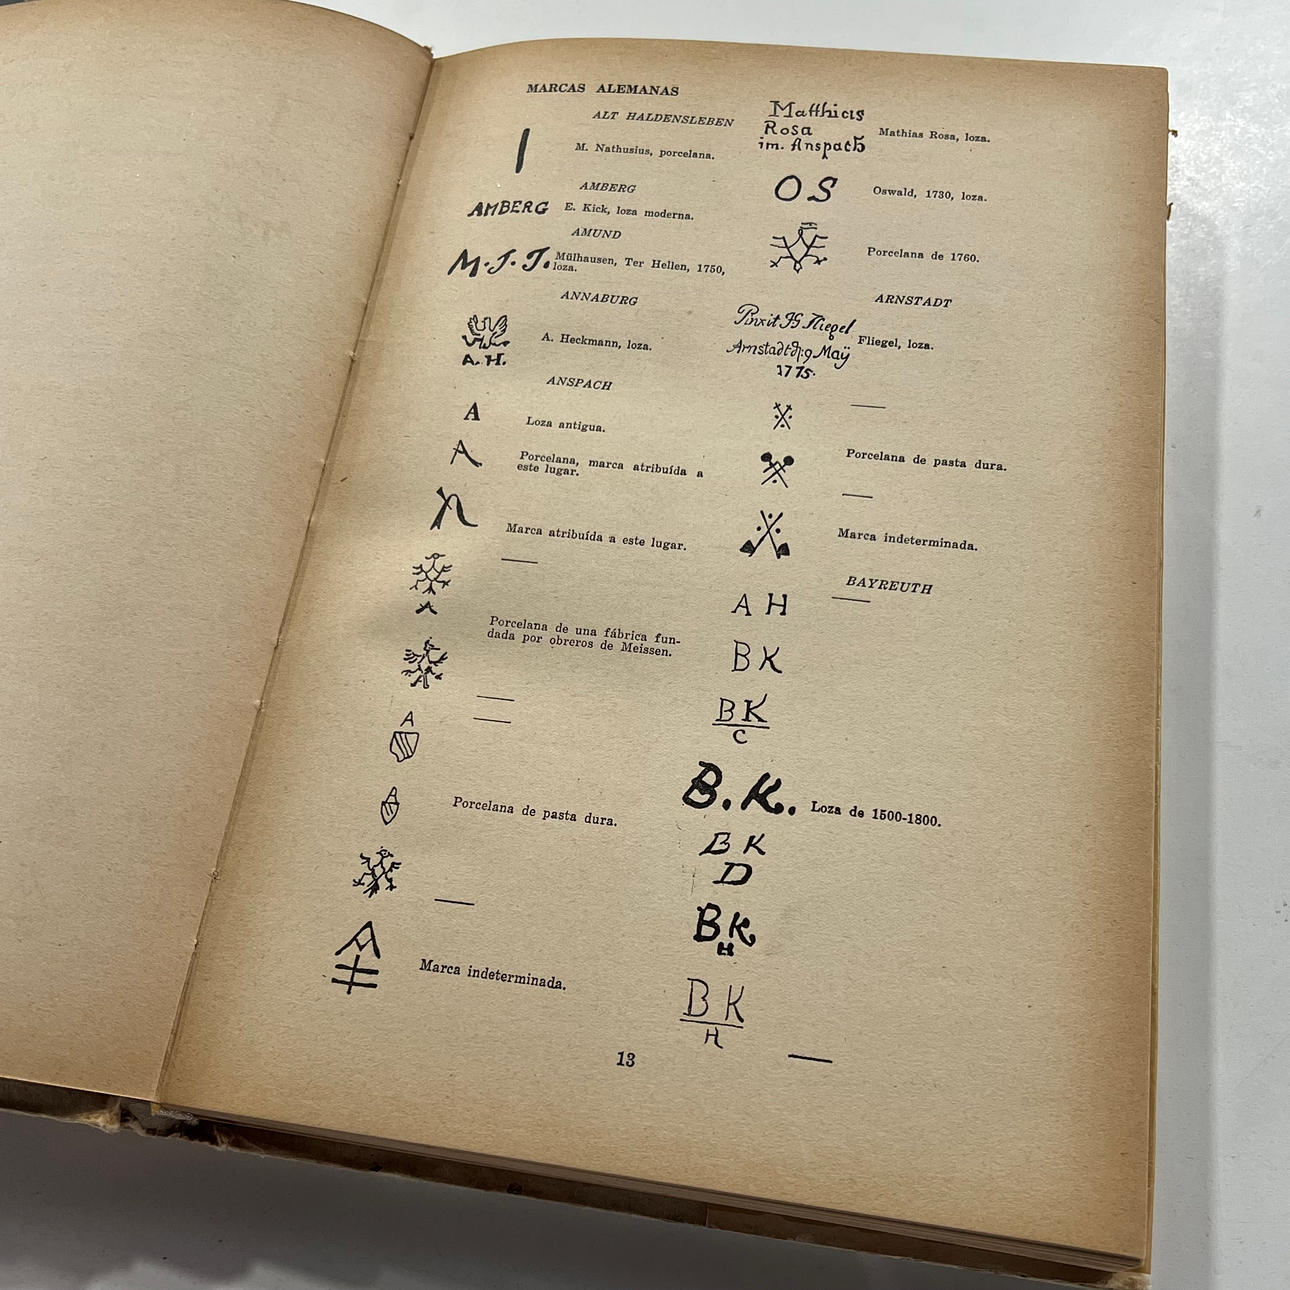 MARCAS ALEMANAS
ALT HALDENSLEBEN
M. Nathusius, porcelana.
AMBERG
AMBERG E. Kick, loza moderna.
AMUND
M.J.J. Mülhausen, Ter Hellen, 1750,
loza.
ANNABURG
A. Heckmann, loza.
A. H.
ANSPACH
A Loza antigua.
A Porcelana, marca atribuída a
este lugar.
Marca atribuída a este lugar.
A
Porcelana de una fábrica fun-
dada por obreros de Meissen.
A
Porcelana de pasta dura.
Marca indeterminada.
Matthias
Rosa
im. Anspach
Mathias Rosa, loza.
OS Oswald, 1730, loza.
Porcelana de 1760.
ARNSTADT
Pinxit Fliegel
Arnstadt d: 9 Maÿ
1775.
Fliegel, loza.
Porcelana de pasta dura.
Marca indeterminada.
BAYREUTH
A H
B K
B K
C
B. K. Loza de 1500-1800.
B K
D
B K
H
B K
H
13